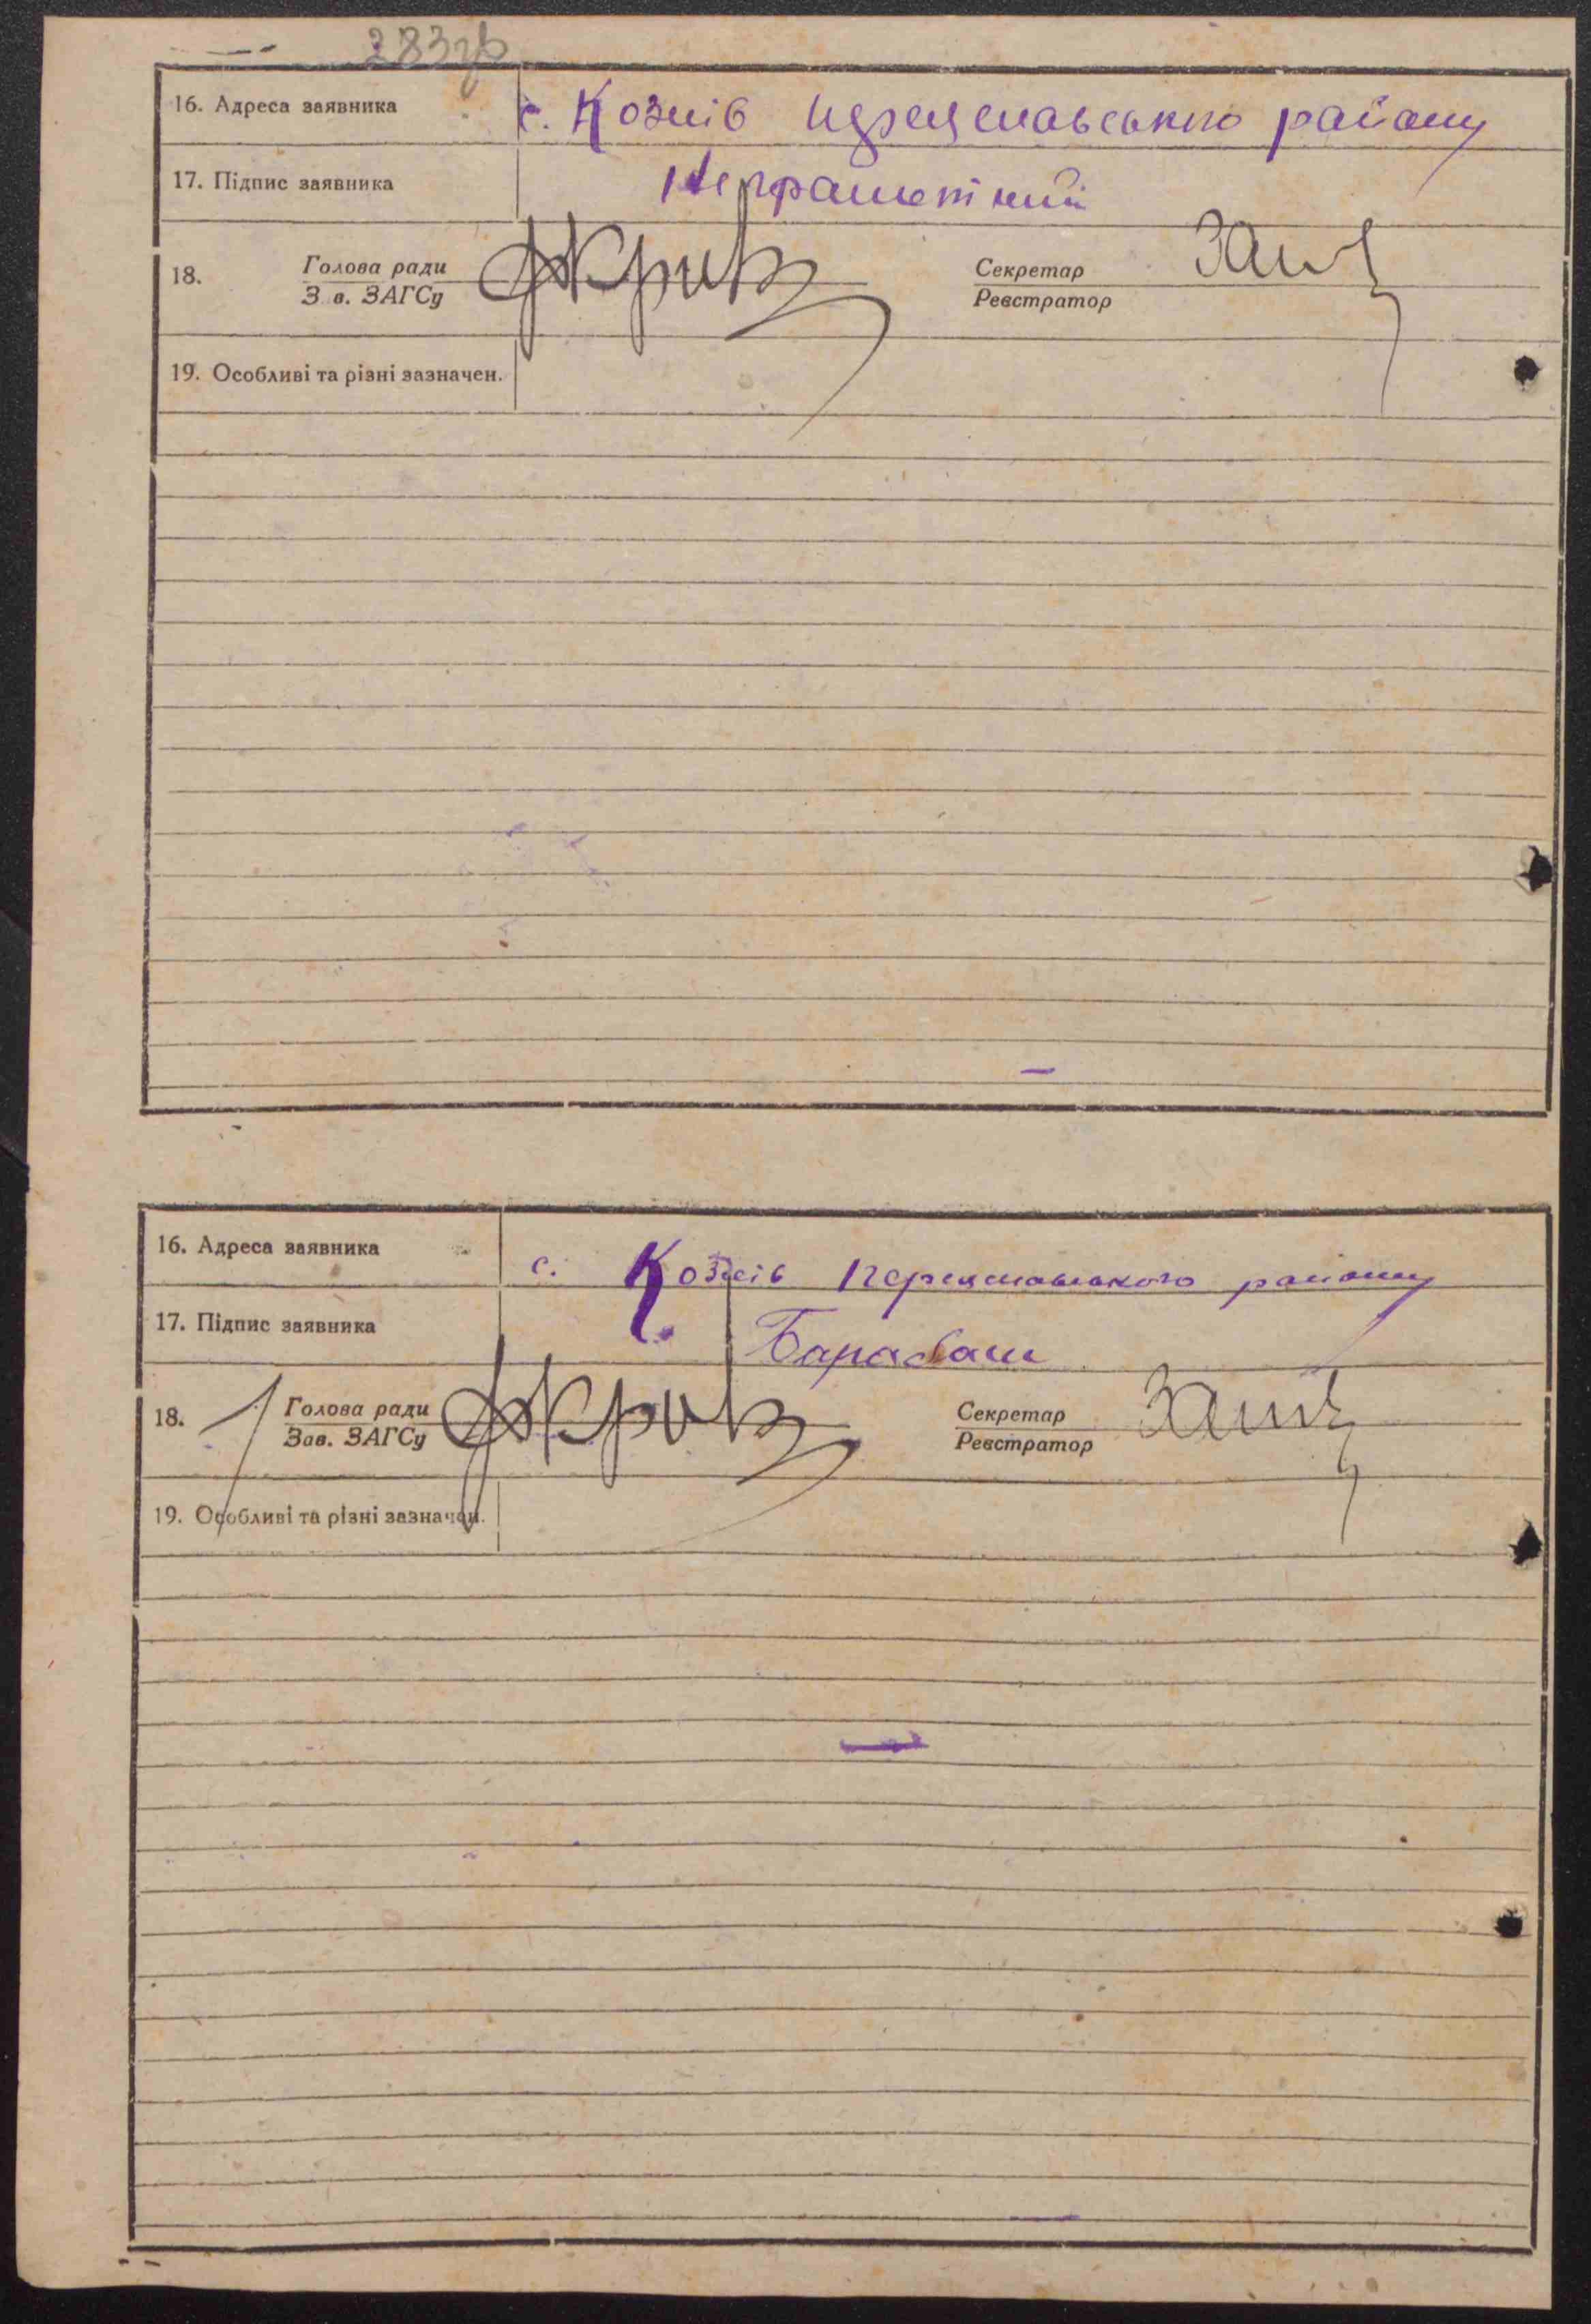 283зв
16. Адреса заявника с. Козлів Переяславського району
17. Підпис заявника Неграмотний
18. Голова ради Секретар
З в. ЗАГСу Реєстратор
19. Особливі та різні зазначен.
16. Адреса заявника с. Козлів Переяславського району
17. Підпис заявника Барабаш
18. Голова ради Секретар
Зав. ЗАГСу Реєстратор
19. Особливі та різні зазначен.